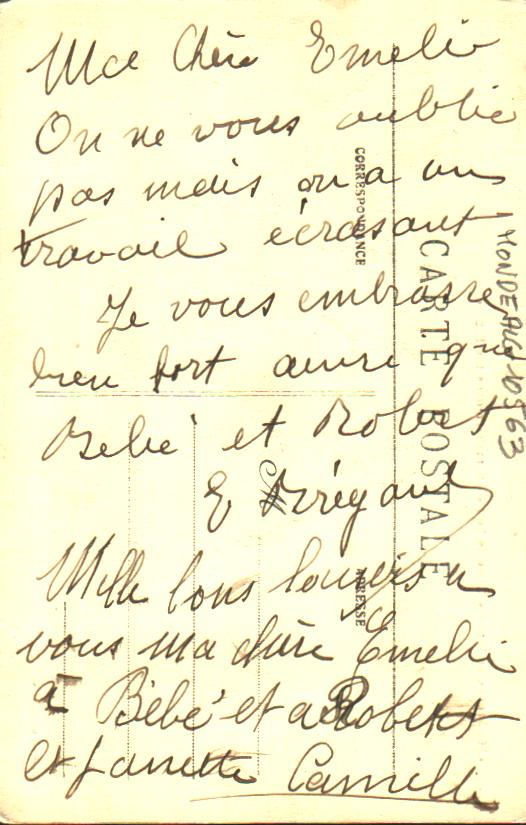 Ma Chère Emelie
On ne vous oublie
pas mais on a un
travail écrasant
Je vous embrasse
bien fort ainsi que
Bébé et Robert
E
Mille bons baisers
vous ma chère Emelie
à Bébé et a Robert
et Camille
CORRESPONDANCE
CARTE POSTALE
ADRESSE